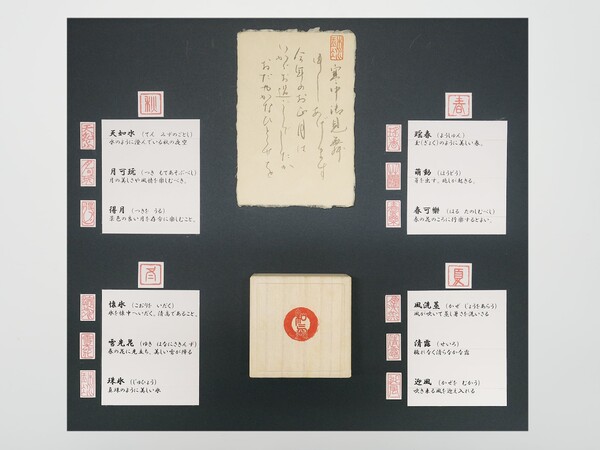 寒中御見舞
申しあげます
今年のお正月は
いかがお過ごしでしたか
秋
天如水（てん　みずのごとし）
水のように澄んでいる秋の夜空
月可玩（つき　もてあそぶべし）
月の美しさが風情を楽しむべき。
得月（つきを　うる）
景色の良い月を存分に楽しむこと。
春
瑶春（ようしゅん）
玉（ぎょく）のように美しい春。
萌動（ほうどう）
芽を出す。兆しが起きる。
春可樂（はる　たのしむべし）
春の花のころに行楽するとよい。
冬
懐氷（こおりを　いだく）
氷を懐中へいだく。清高であること。
雪先花（ゆき　はなにさきんず）
春の花に先立ち、美しい雪が降る
珠氷（じゅひょう）
真珠のように美しい氷
夏
風洗蒸（かぜ　じょうをあらう）
風が吹いて蒸し暑さを洗いさる
清露（せいろ）
穢がなく清らなかな露
迎風（かぜを　むかう）
吹き来る風を迎え入れる